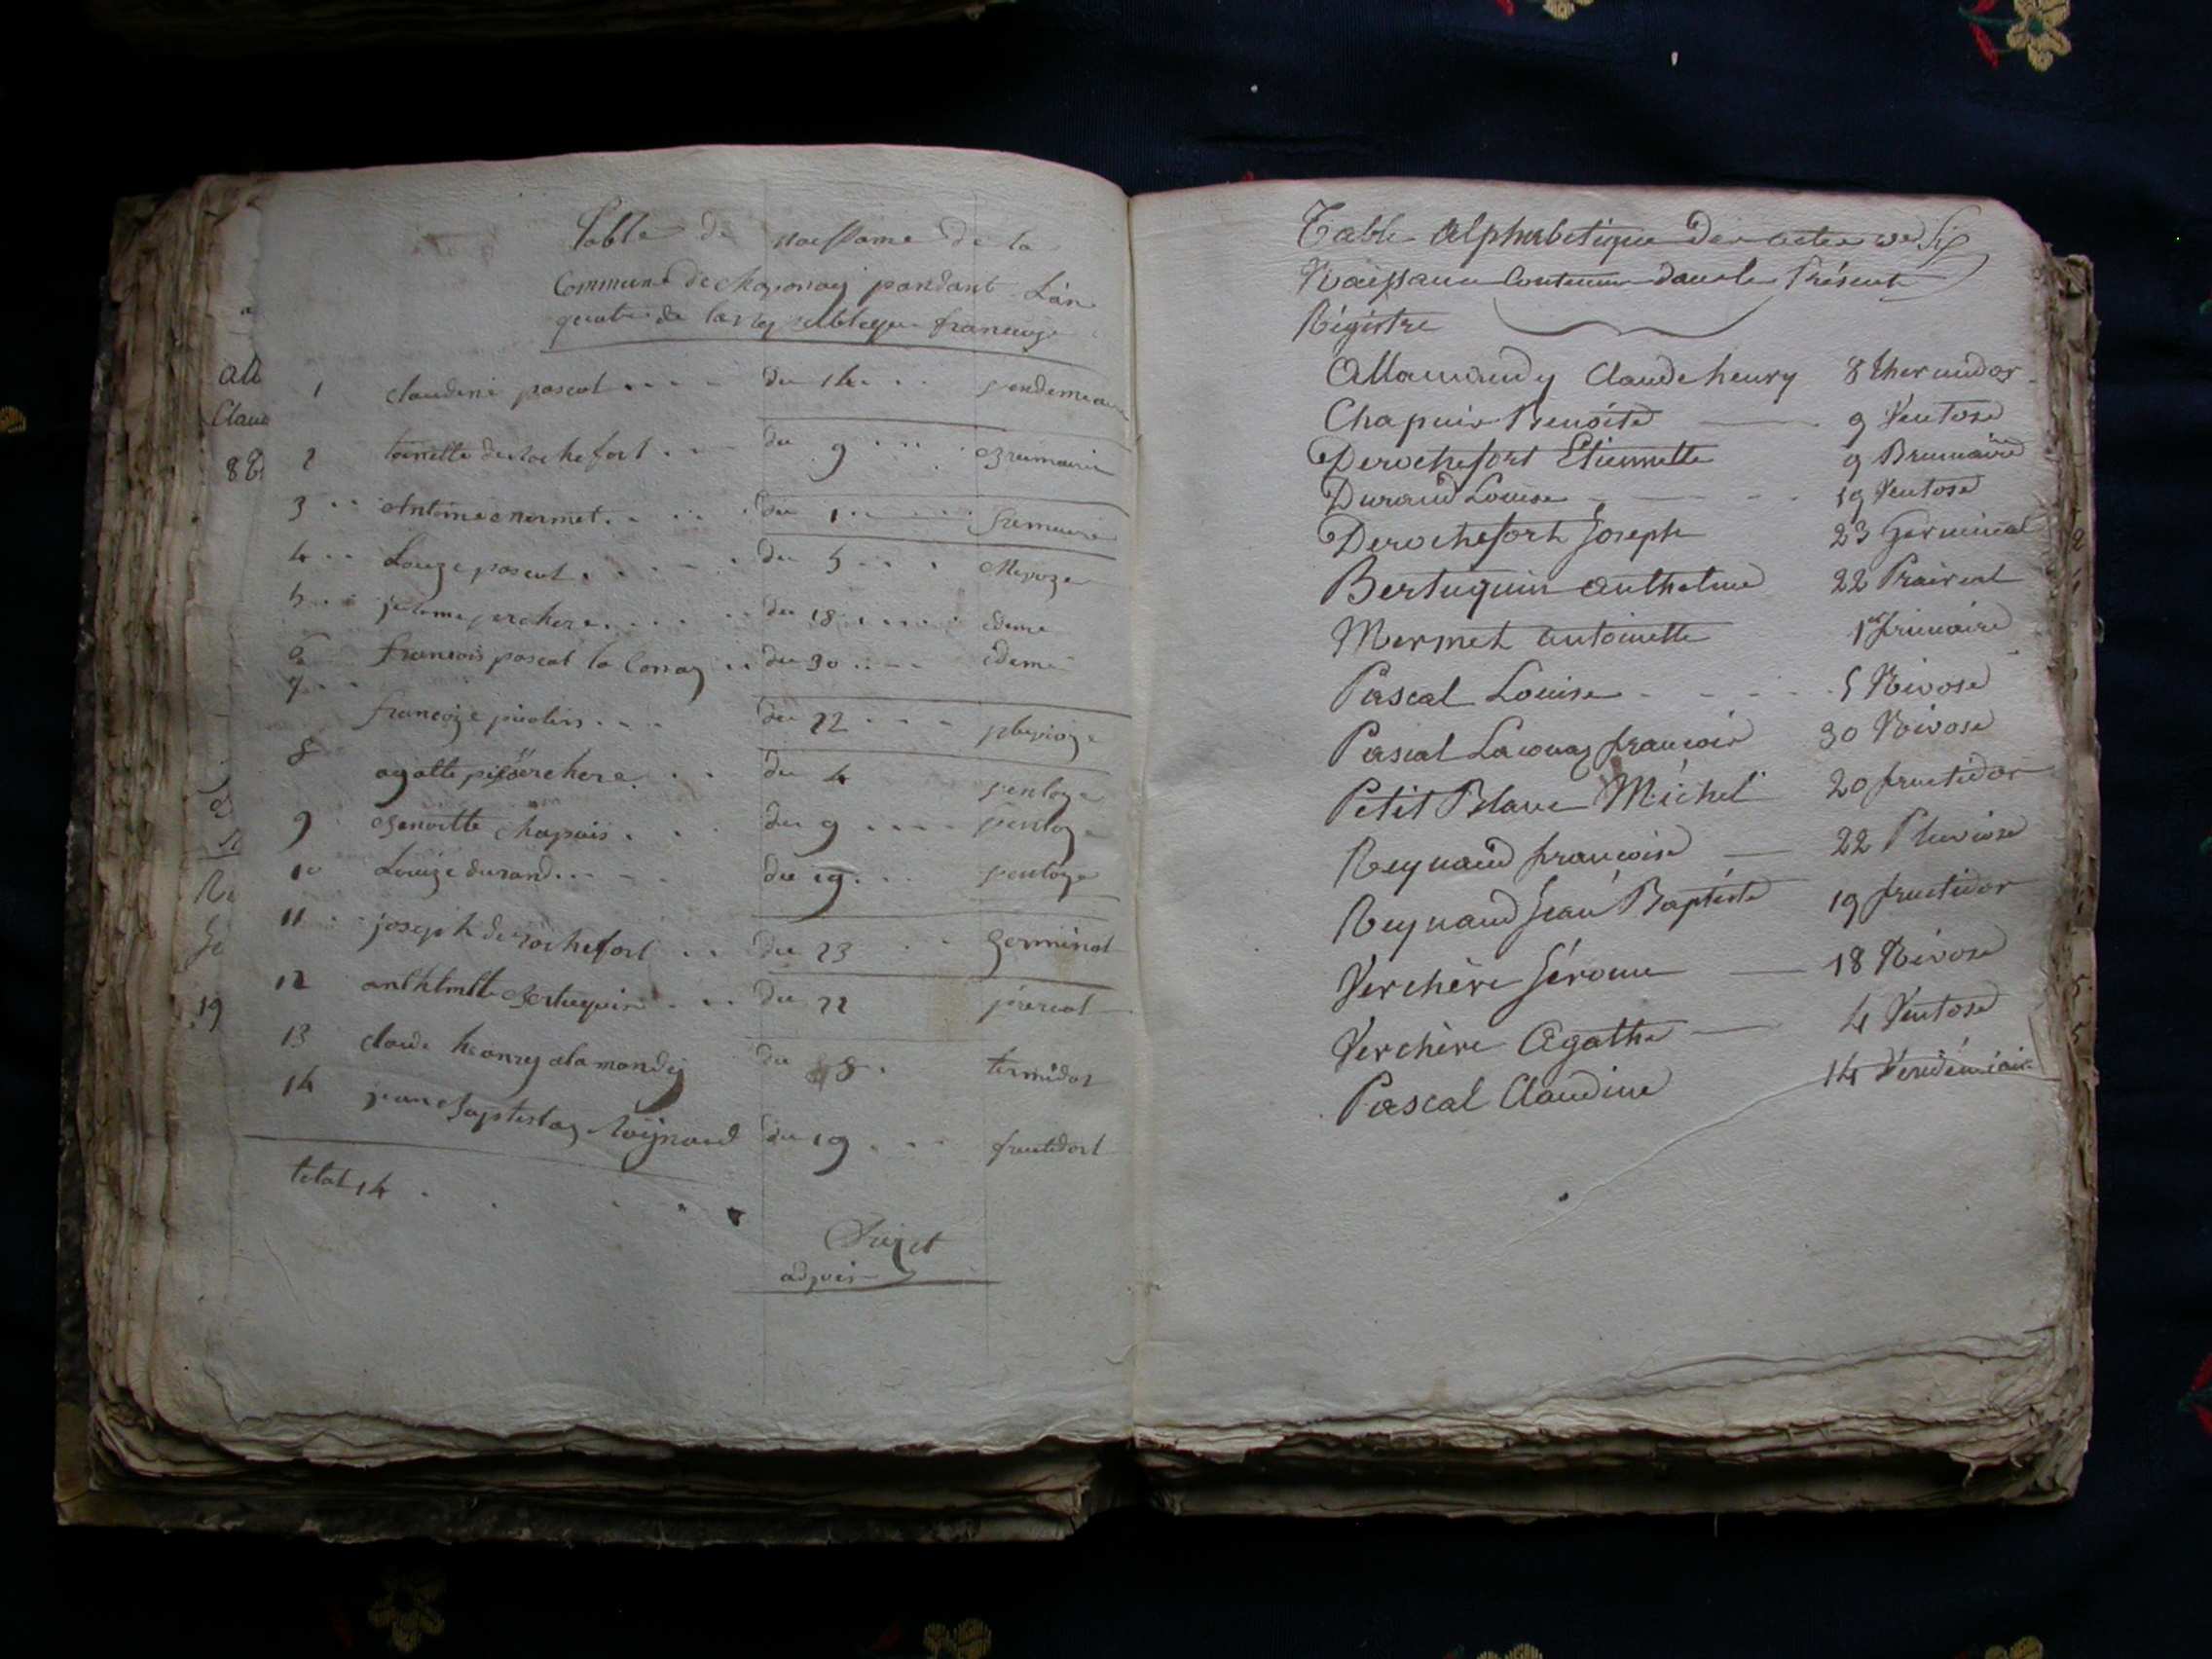 Table de naissance de la
Commune de Chaponay pandant L'an
quatre de la republique francoize
1 claudine pascal du 14 vendemeaire
2 toinette derochefort du 9 Brumaire
3 Antoinee mermet du 1 frimaire
4 Louze pascal du 5 Nivoze
5 jerome verchere du 18 idem
6 francois pascal la Conay du 30 idem
7
francoize du 22 pluvioze
8
agatte verchere du 4 ventoze
9 Benoitte chapuis du 9 ventoze
10 Louize durand du 19 ventoze
11 joseph derochefort du 23 Germinal
12 anthelmtte Bertuquin du 22 prerial
13 claude heanry alamandy du 8 termidor
14 jean Baptistay Raynaud du 19 fructidort
total 14
adjoin
all
Claud
8 t
19
Table Alphabétique des actes de
Naissance Contenus dans le Présent
Régistre
Allamandy Claude henry 8 thermidor
Chapuis Benoite 9 Ventose
Derochefort Etiennette 9 Brumaire
Durand Louise 19 Ventose
Derochefort Joseph 23 Germinal
Bertuquin anthelme 22 Prairial
Mermet antoinette 1er frimaire
Pascal Louise 5 Nivose
Pascal Laconay francois 30 Nivose
Petit Blanc Michel 20 fructidor
Reynaud francoise 22 Pluviose
Reynaud Jean Baptiste 19 fructidor
Verchère Jérome 18 Nivose
Verchère Agathe 4 Ventose
Pascal Claudine 14 Vendémiaire